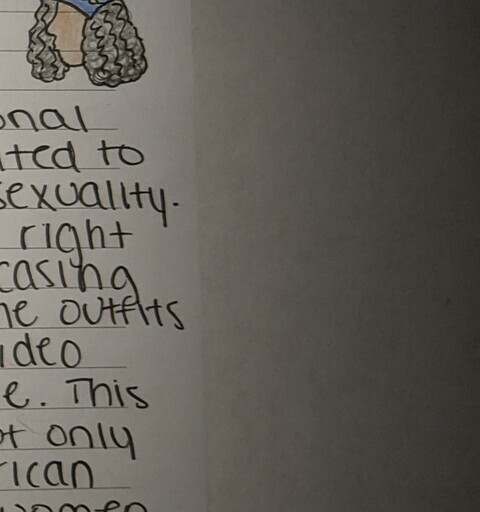 onal
ited to
sexuality.
right
casing
he outfits
ideo
e. This
ot only
rican
women